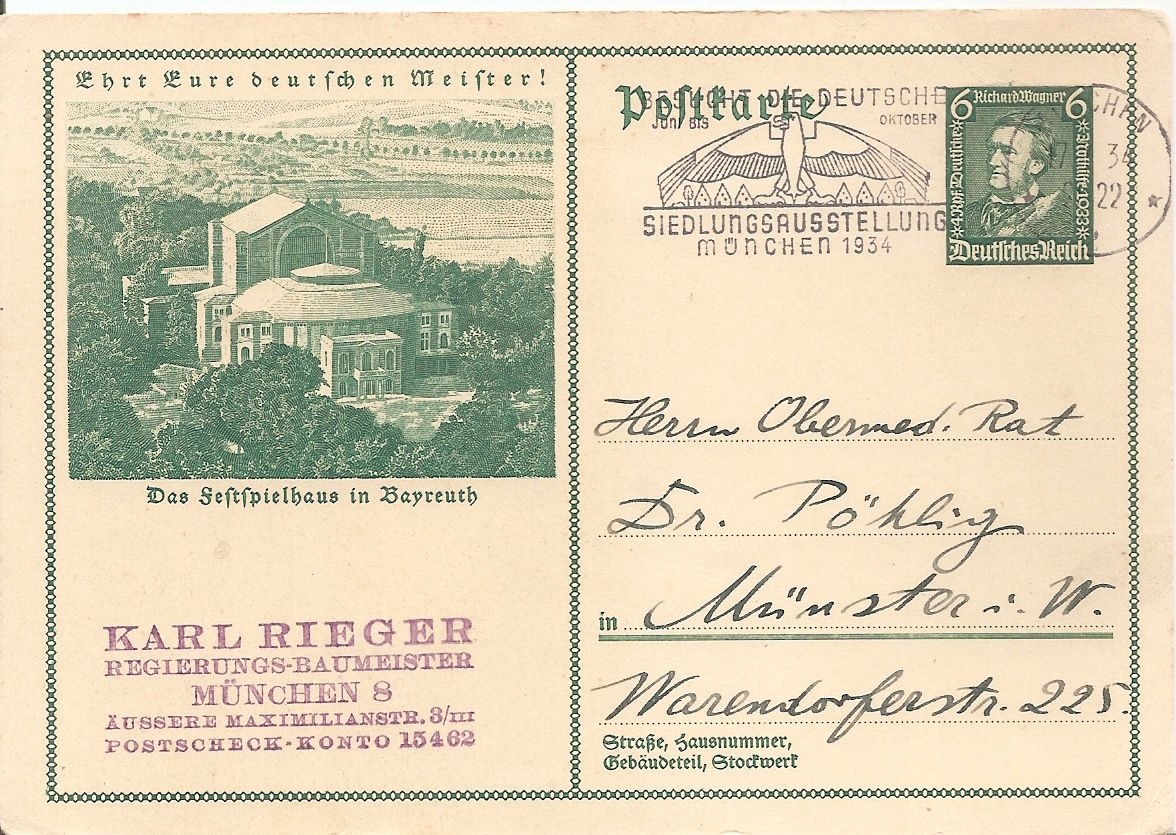 Ehrt Eure deutschen Meister!
Das Festspielhaus in Bayreuth
KARL RIEGER
REGIERUNGS-BAUMEISTER
MÜNCHEN 8
ÄUSSERE MAXIMILIANSTR. 3/III
POSTSCHECK-KONTO 15462
Postkarte
BESUCHT DIE DEUTSCHE
JUNI BIS OKTOBER
SIEDLUNGSAUSSTELLUNG
MÜNCHEN 1934
6 Richard Wagner 6
Deutsches Reich
1933
CHEN
34
22
Herrn Obermed. Rat
Dr. Pöhlig
in Münster i. W.
Warendorferstr. 225.
Straße, Hausnummer,
Gebäudeteil, Stockwerk